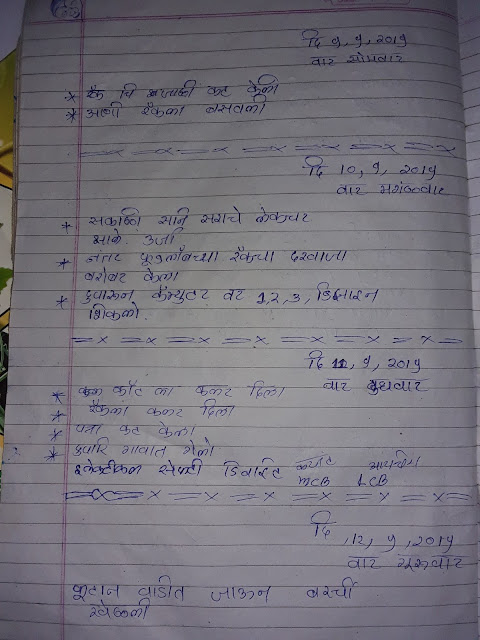 दि 9, 9, 2019
वार सोमवार
* रॅक चि कट केली
* आणी रॅकला बसवली
दि 10, 9, 2019
वार मगंळवार
* सकाळी सानि सराचे लेकचर
झाले. उर्जा
* नंतर फुडलॉबच्या रॅकचा दरवाजा
बरोबर केला
* दुपारून कॅम्पुटर वर 1, 2, 3, डिझाइन
शिकलो.
दि 11, 9, 2019
वार बुधवार
* कॉट ला कलर दिला
* रॅकला कलर दिला
* पत्रा कट केला
* दुपारि गावात गेलो
इलेक्ट्रीकल सेफ्टी डिवाईट
MCB LCB
दि ,12, 9, 2019
वार गुरुवार
वाडीत जाऊन
खेळली